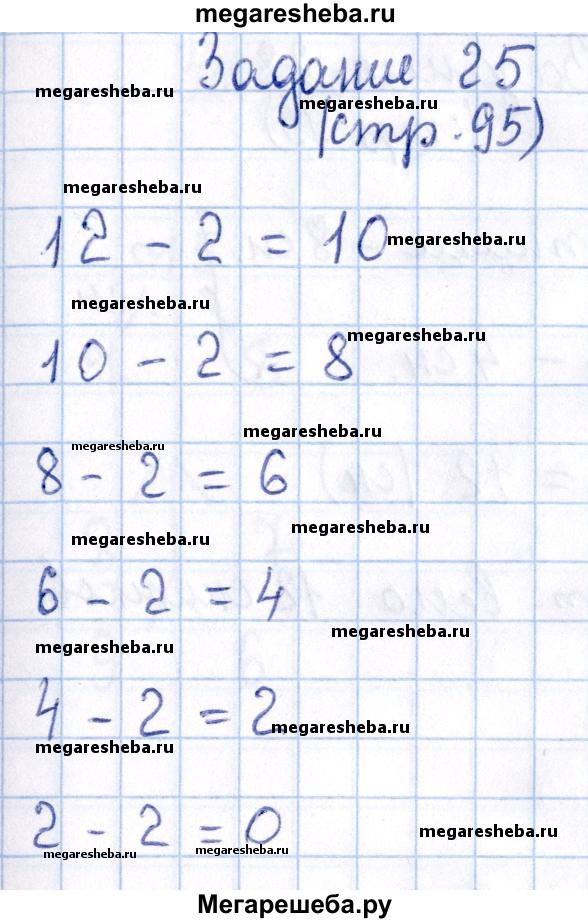 megaresheba.ru
Задание 25
megaresheba.ru
megaresheba.ru
(стр. 95)
megaresheba.ru
12 - 2 = 10
megaresheba.ru
megaresheba.ru
megaresheba.ru
10 - 2 = 8
megaresheba.ru
megaresheba.ru
8 - 2 = 6
megaresheba.ru
megaresheba.ru
6 - 2 = 4
megaresheba.ru
megaresheba.ru
4 - 2 = 2
megaresheba.ru
megaresheba.ru
2 - 2 = 0
megaresheba.ru
megaresheba.ru
megaresheba.ru
Мегарешеба.ру